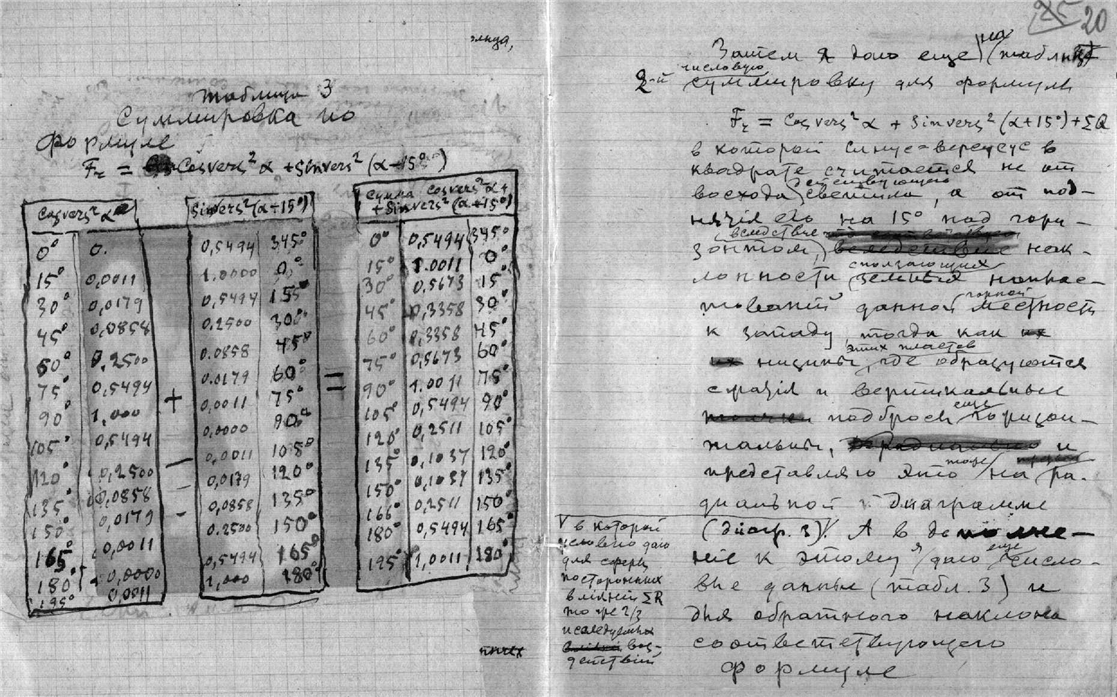 элица,
Таблица 3
Суммировка по
формуле
Fг = Cosvers²α + Sinvers²(α-15°)
Cosvers²α
0° 0.
15° 0,0011
30° 0,0179
45° 0,0858
60° 0.2500
75° 0,5494
90° 1,000
105° 0,5494
120° 0,2500
135° 0,0858
150° 0,0179
165° 0,0011
180° 0,0000
195° 0,0011
+
Sinvers²(α+15°)
0,5494 345°
1.0000 0°
0,5494 15°
0.2500 30°
0.0858 45°
0.0179 60°
0,0011 75°
0.0000 90°
0,0011 105°
0,0179 120°
0,0858 135°
0.2500 150°
0,5494 165°
1,000 180°
=
Сумма Cosvers²α+
+ Sinvers²(α+15°)
0° 0,5494 345°
15° 1.0011 0°
30° 0,5673 15°
45° 0,3358 30°
60° 0,3358 45°
75° 0,5673 60°
90° 1,0011 75°
105° 0,5494 90°
120° 0,2511 105°
135° 0,1037 120°
150° 0,1037 135°
166° 0,2511 150°
180° 0,5494 165°
195° 1,0011 180°
25 20
Затем я даю еще на таблице
числовую
2-й суммировку для формулы
Fг = Cosvers²α + Sinvers²(α+15°)+ΣQ
в которой синус-версус в
квадрате считается не от
действующего
восхода светила, а от под-
нятия его на 15° над гори-
вследствие
зонтом, нак-
сползающих
лонности земных напла-
горной
стований данной местности
к западу тогда как
этих пластов
низины, где образуются
сдвиги и вертикальные
еще
подбросы горизон-
тальный, и
тоже
представляю это на ра-
диальной диаграмме
(диагр. 3). А в дополне-
я еще
ние к этому даю число-
вые данные (табл. 3) и
для обратного наклона
соответствующего
формуле
в которой
условно даю
для сферы
посторонних
влияний ΣR
тоже 2/3
исследуемых
воз-
действий